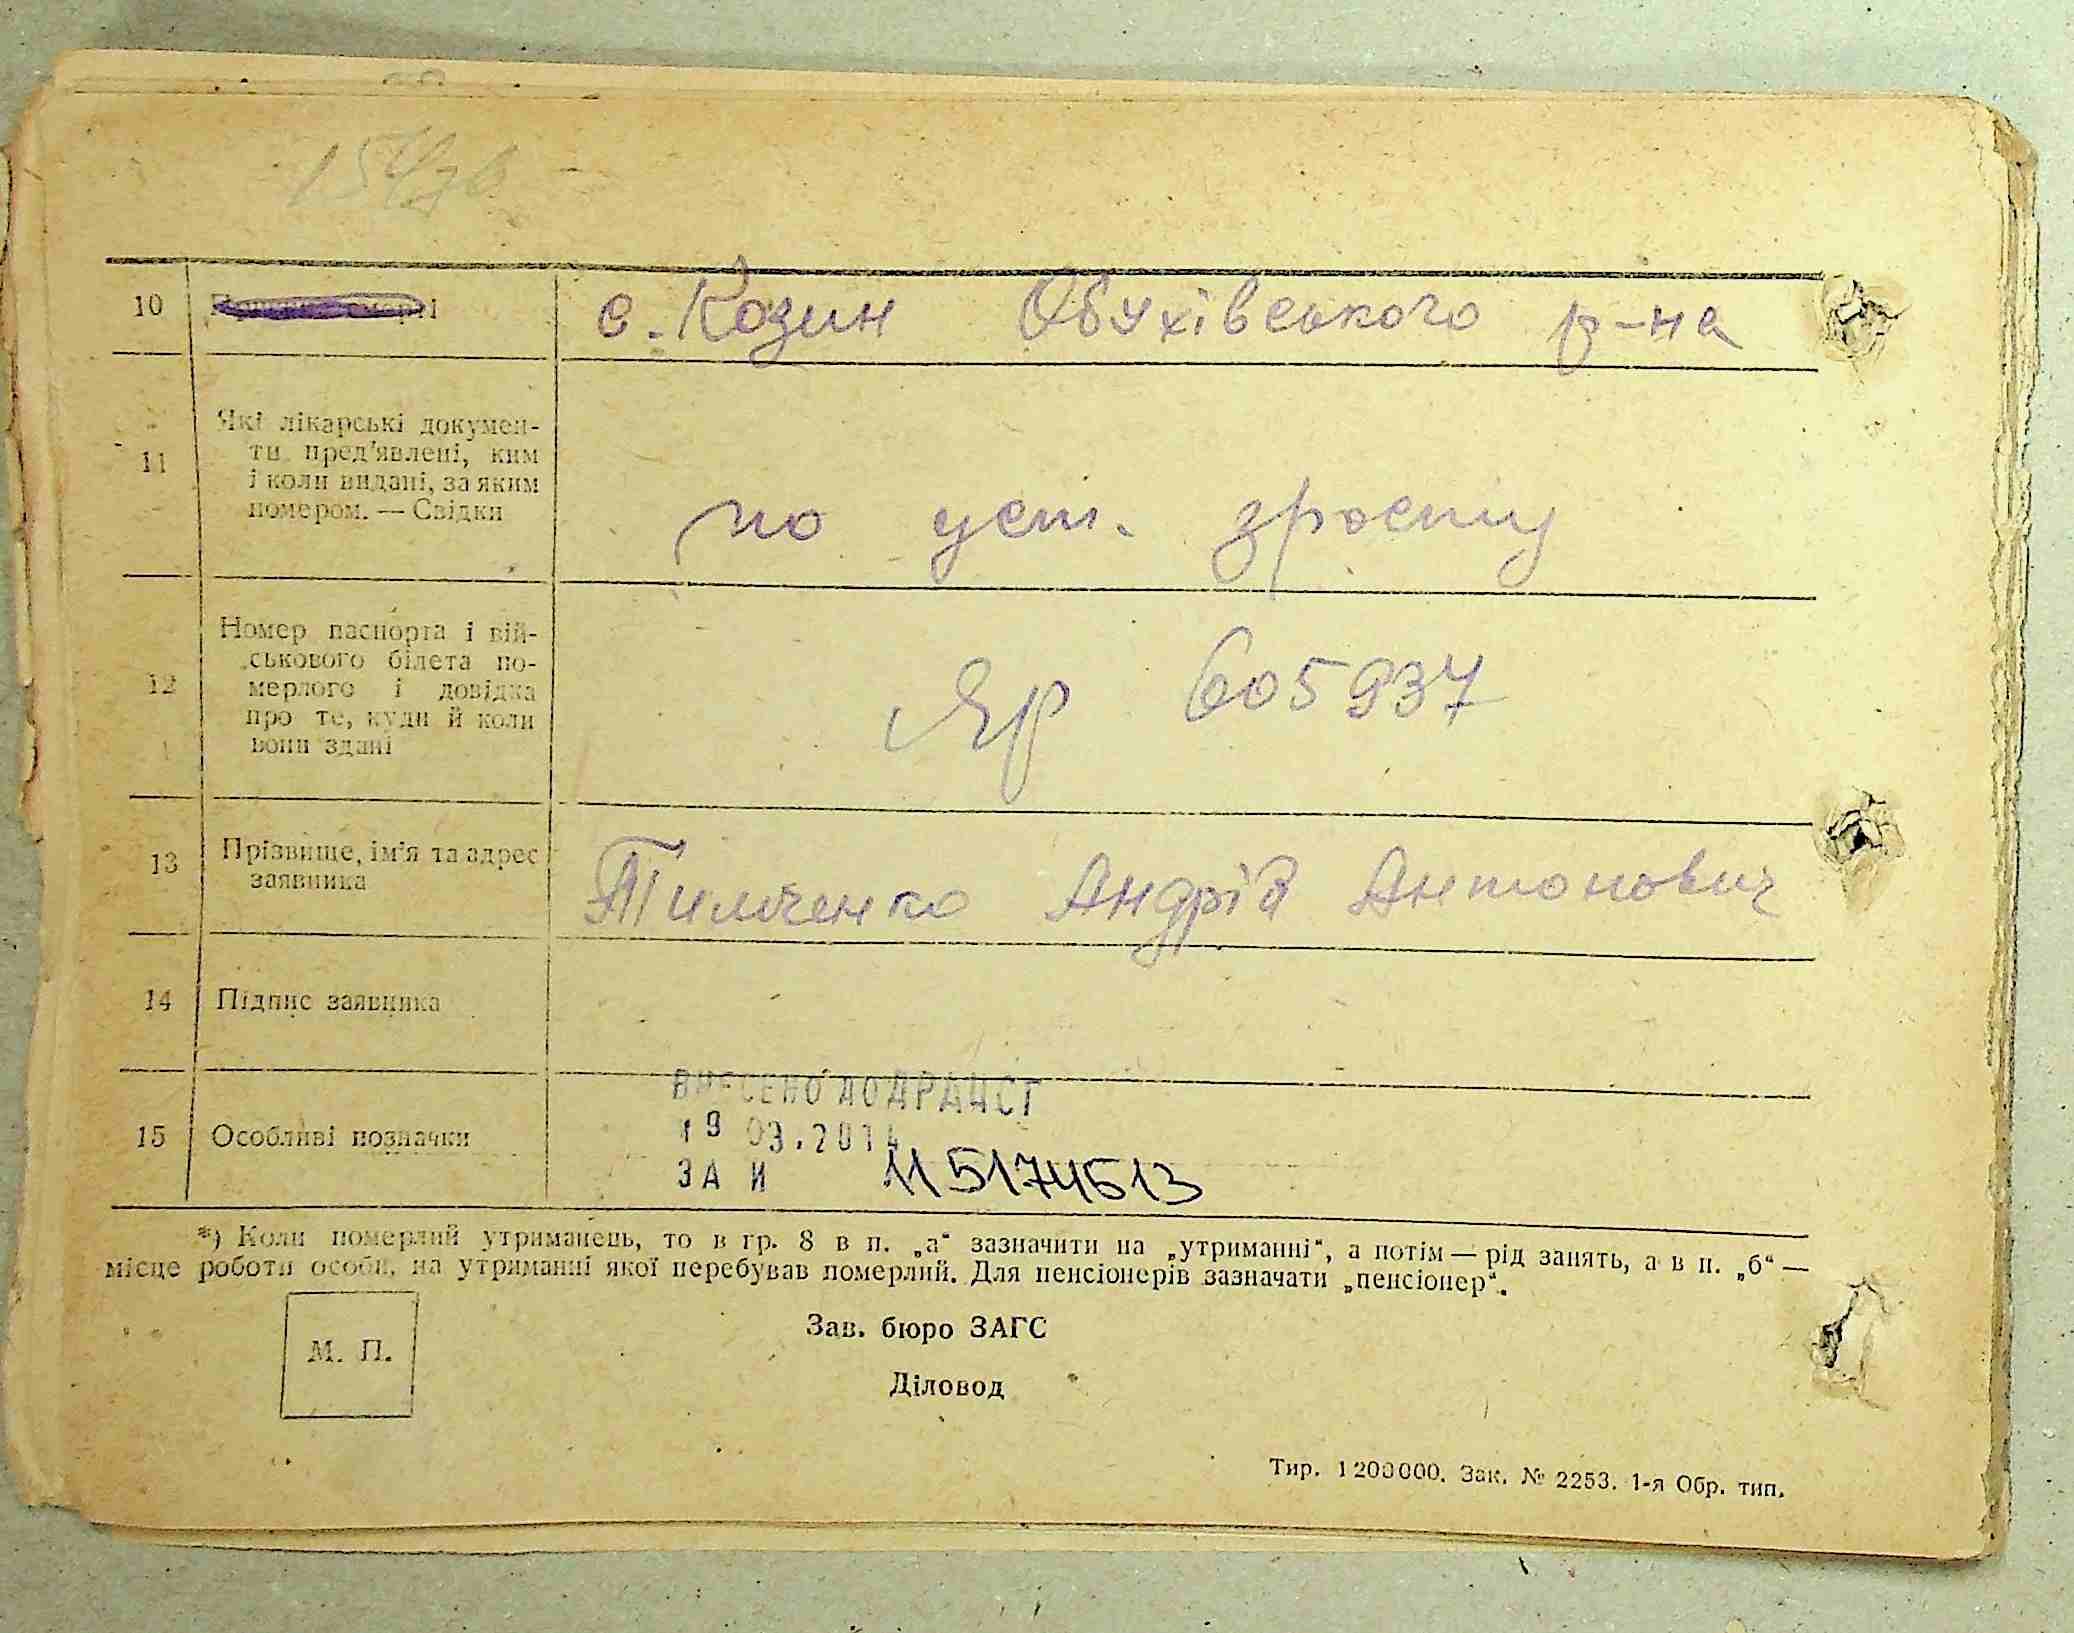 10 с. Козин Обухівського р-на
Які лікарські докумен-
ти пред'явлені, ким
11
і коли видані, за яким
номером. — Свідки
по уст. зросту
Номер паспорта і вій-
ськового білета по-
12 мерлого і довідка
про те, куди й коли
вони здані
ЯР 605937
13 Прізвище, ім'я та адрес
заявника
Тимченко Андрій Антонович
14 Підпис заявника
ВНЕСЕНО ДО ДРАЦСГ
15 Особливі позначки
19 03.2014
ЗА И 115174513
*) Коли померлий утриманець, то в гр. 8 в п. „а“ зазначити на „утриманні“, а потім — рід занять, а в п. „б“ —
місце роботи особи, на утриманні якої перебував померлий. Для пенсіонерів зазначати „пенсіонер“.
Зав. бюро ЗАГС
М. П.
Діловод
Тир. 1200000. Зак. № 2253. 1-я Обр. тип.